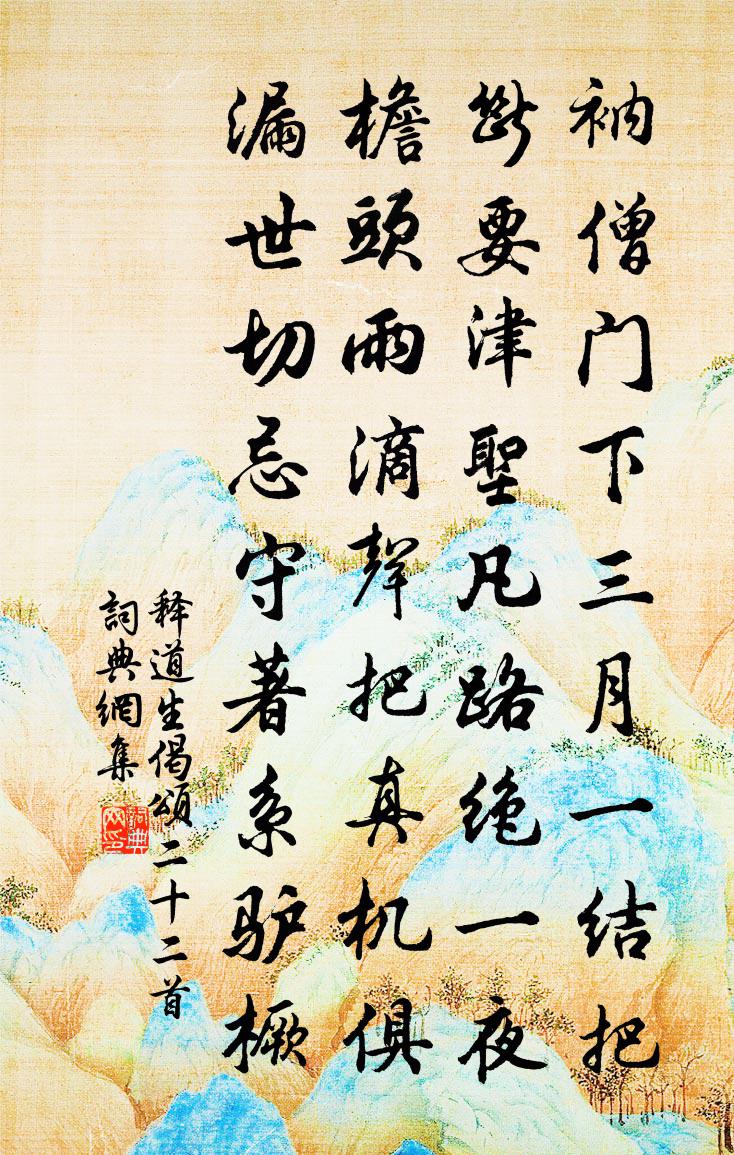 衲僧门下三月一结把
断要津聖凡路绝一夜
檐頭雨滴聲把真机俱
漏世切忌守著系驴橛
释道生偈頌二十二首
詞典網集
詞典
网印